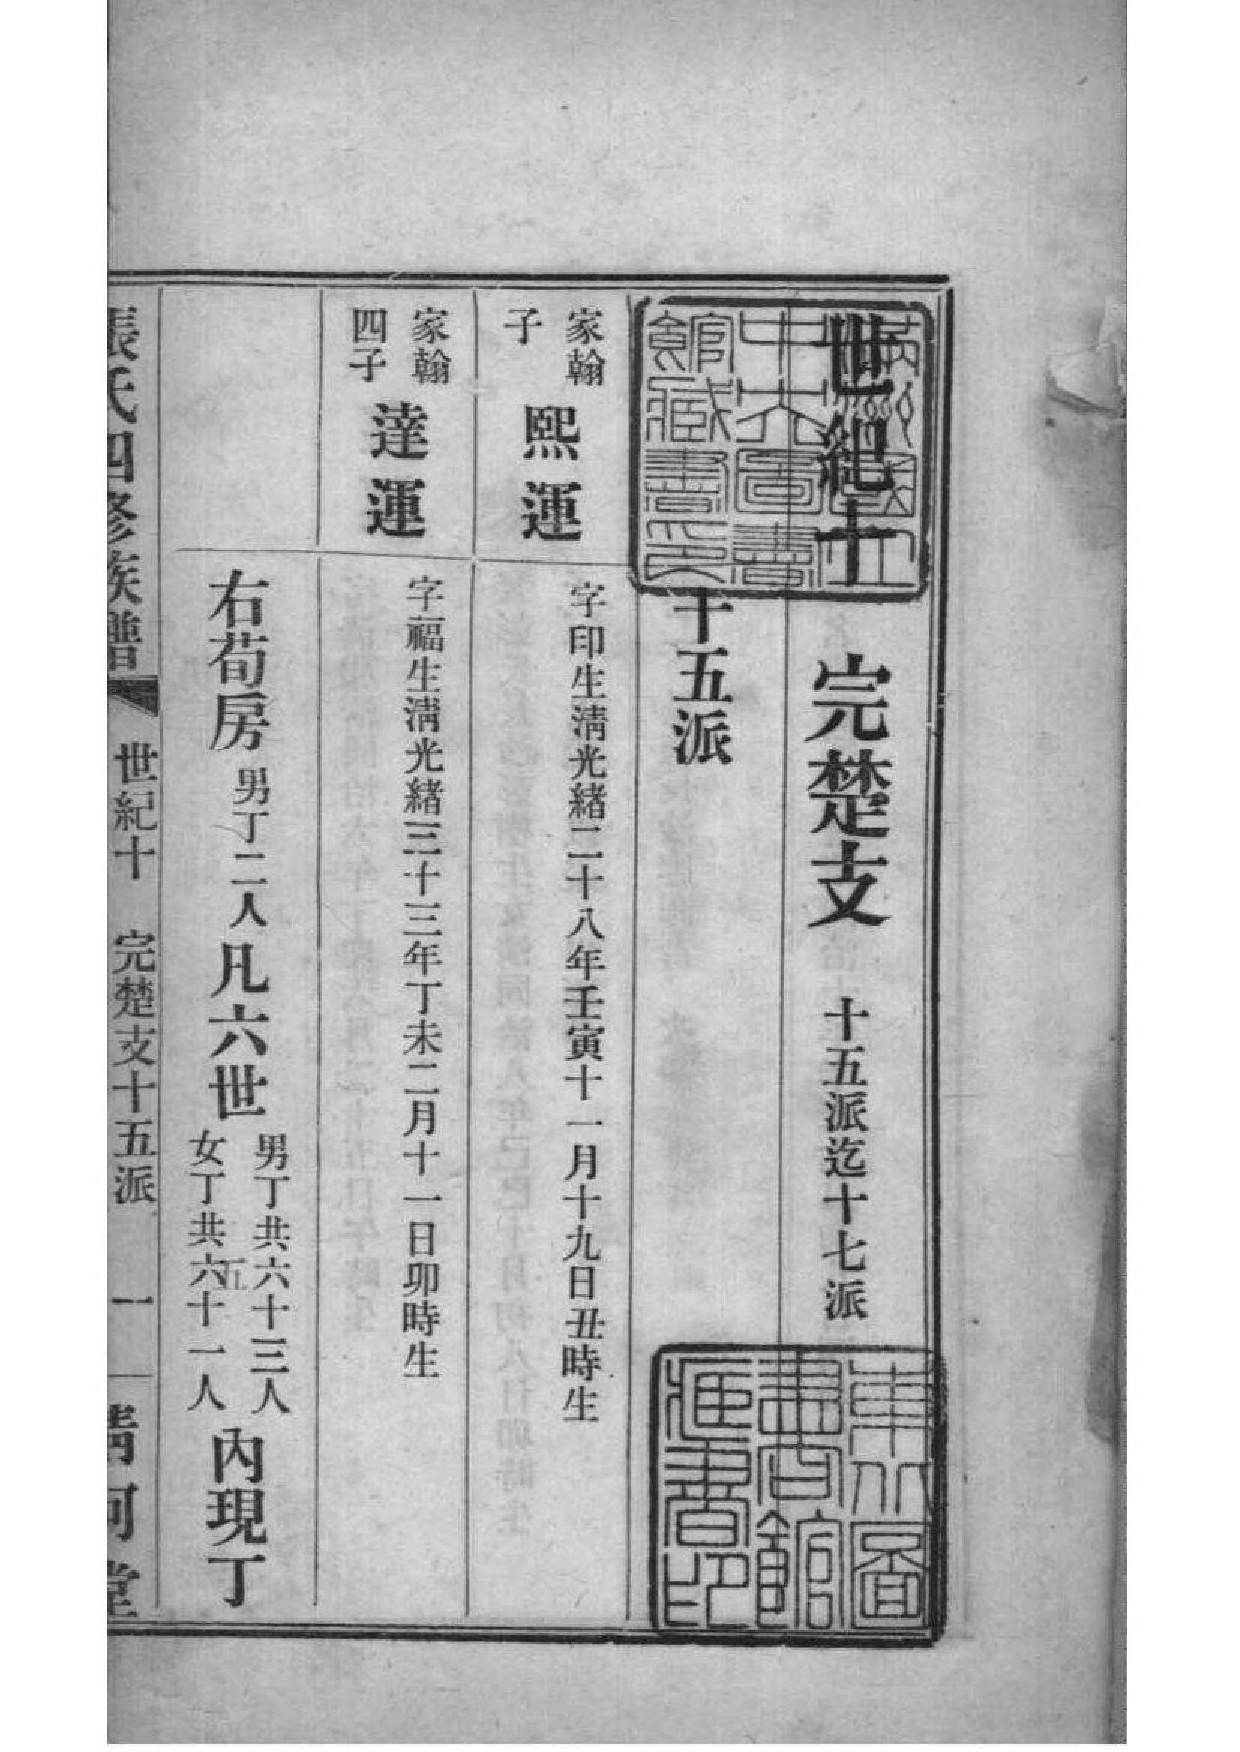 世紀十　完楚支　十五派迄十七派
十五派
家翰
子
熙運
字印生淸光緖二十八年壬寅十一月十九日丑時生
家翰
四子
達運
字福生淸光緖三十三年丁未二月十一日卯時生
右荀房
男丁二人
凡六世
男丁共六十三人
女丁共六十一人
五
內現丁
張氏四修族譜
世紀十　完楚支十五派
一
淸河堂
中央圖書
館藏書印
東北圖
書館
藏書印